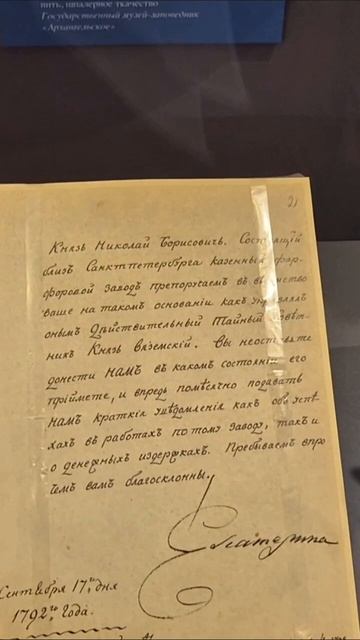 нить, шпалерное ткачество
Государственный музей-заповедник
«Архангельское»
21
Князь Николай Борисовичь. Состоящїй
близь Санктпетербурга казенный фар-
форовой заводъ препоручаемъ въ вѣдомство
ваше на такомъ основанїи какъ управлялъ
онымъ Дѣйствительный Тайный Совѣт-
никъ Князь Вяземскїй. Вы неоставьте
донести НАМЪ въ какомъ состоянїи его
прїймете, и впредь помѣсячно подавать
НАМЪ краткїя увѣдомленїя какъ объ успѣ
хахъ въ работахъ по тому заводу, такъ и
о денежныхъ издержкахъ. Пребываемъ впро
чемъ вамъ благосклонны.
Екатерина
Сентября 17го дня
1792го года.